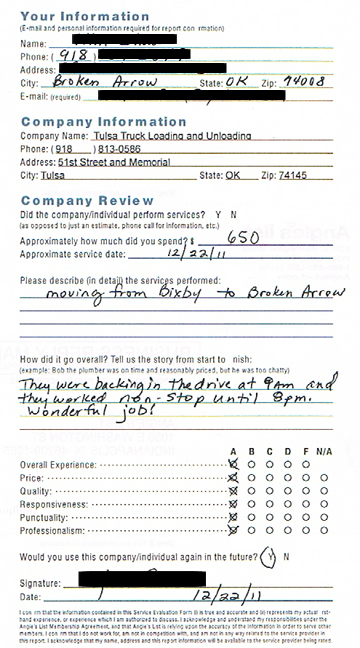 Your Information
(E-mail and personal information required for report con rmation)
Name:
Phone: ( 918 )
Address:
City: Broken Arrow State: OK Zip: 74008
E-mail: (required)
Company Information
Company Name: Tulsa Truck Loading and Unloading
Phone: ( 918 ) 813-0586
Address: 51st Street and Memorial
City: Tulsa State: OK Zip: 74145
Company Review
Did the company/individual perform services? Y N
(as opposed to just an estimate, phone call for information, etc.)
Approximately how much did you spend? $ 650
Approximate service date: 12/22/11
Please describe (in detail) the services performed:
moving from Bixby to Broken Arrow
How did it go overall? Tell us the story from start to nish:
(example: Bob the plumber was on time and reasonably priced, but he was too chatty)
They were backing in the drive at 9am and
they worked non-stop until 8pm.
Wonderful job!
A B C D F N/A
Overall Experience:
Price:
Quality:
Responsiveness:
Punctuality:
Professionalism:
Would you use this company/individual again in the future? Y N
Signature:
Date: 12/22/11
I con rm that the information contained in this Service Evaluation Form (i) is true and accurate and (ii) represents my actual rst-
hand experience, or experience which I am authorized to discuss. I acknowledge and understand my responsibilities under the
Angie's List Membership Agreement, and that Angie's List is relying upon the accuracy of the information in order to serve other
members. I con rm that I do not work for, am not in competition with, and am not in any way related to the service provider in
this report. I acknowledge that my name, address and this report information will be available to the service provider being rated.